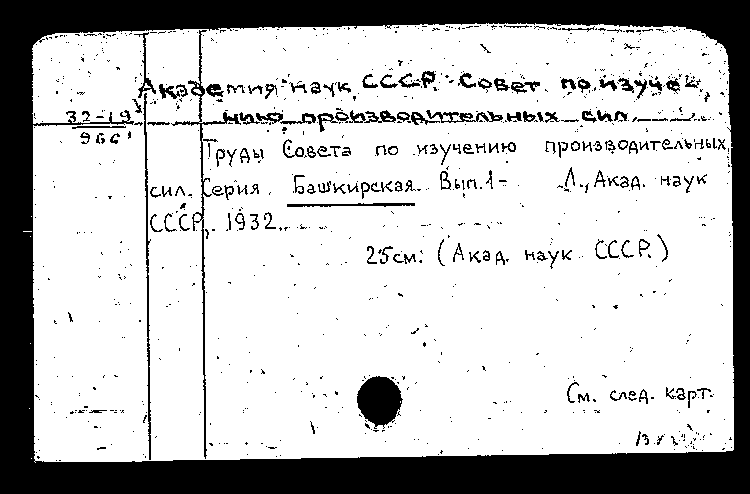 Академия наук СССР. Совет по изуче-
32-19
нию производительных сил.
966
Труды Совета по изучению производительных
сил. Серия Башкирская. Вып.1- Л., Акад. наук
СССР, 1932.
25см. (Акад. наук СССР.)
См. след. карт.